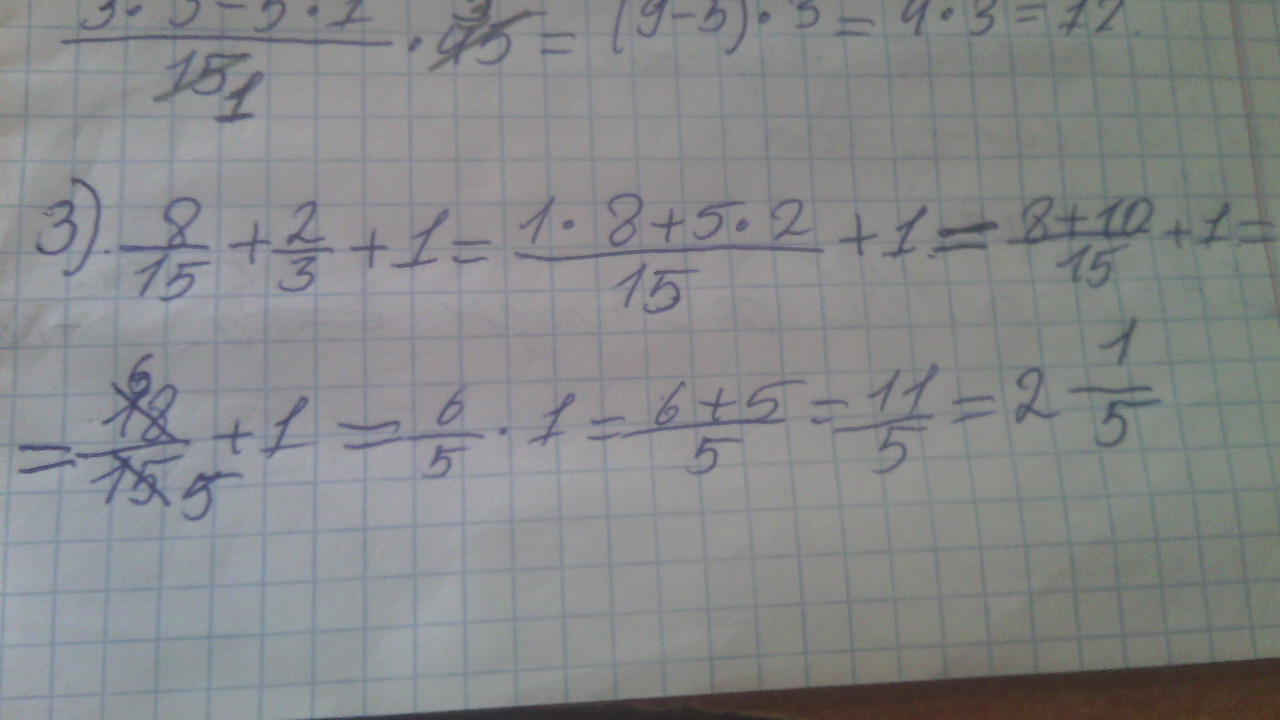 3·3-5·1/15 1 · 45 3 = (9-5)·3 = 4·3 = 12.
3). 8/15 + 2/3 + 1 = 1·8+5·2/15 + 1 = 8+10/15 + 1 =
= 18 6/15 5 + 1 = 6/5 · 1 = 6+5/5 = 11/5 = 2 1/5